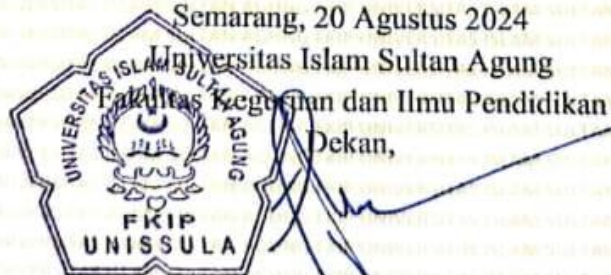 Semarang, 20 Agustus 2024
Universitas Islam Sultan Agung
Fakultas Keguruan dan Ilmu Pendidikan
Dekan,
UNIVERSITAS ISLAM SULTAN AGUNG
FKIP
UNISSULA